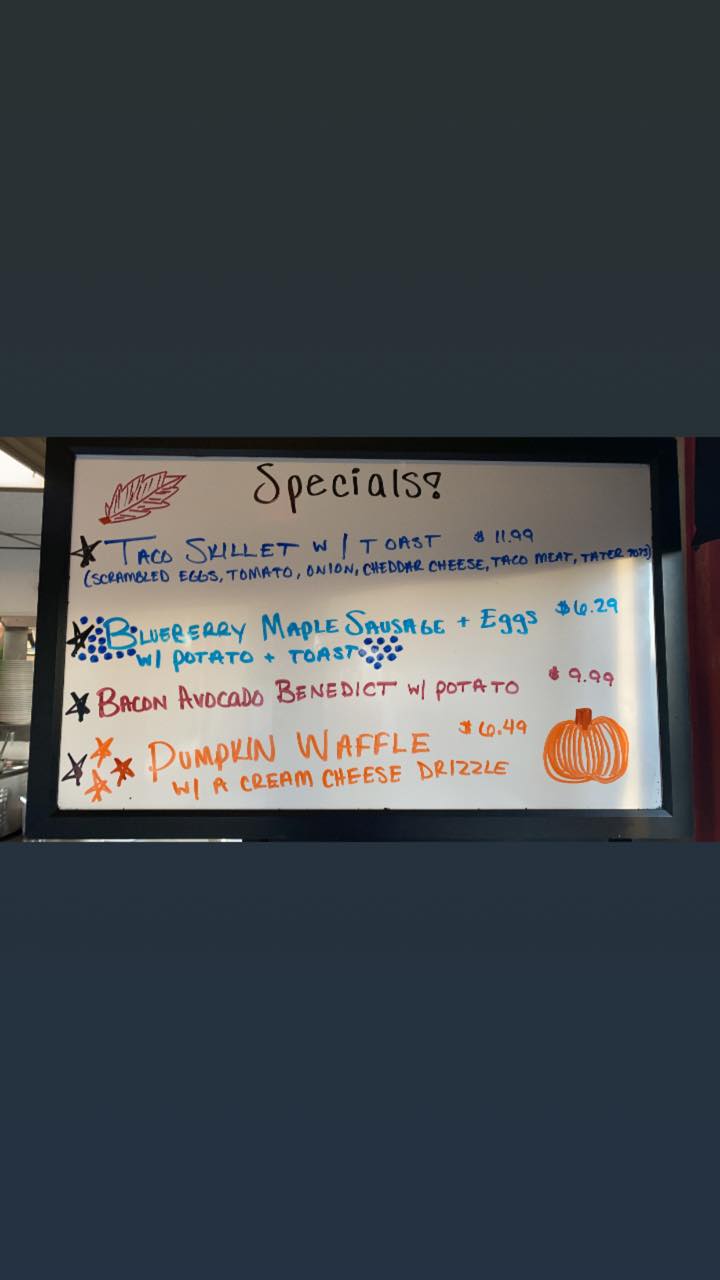 Specials!
TACO SKILLET W/ TOAST $11.99
(SCRAMBLED EGGS, TOMATO, ONION, CHEDDAR CHEESE, TACO MEAT, TATER TOTS)
BLUEBERRY MAPLE SAUSAGE + Eggs $6.29
W/ POTATO + TOAST
BACON AVOCADO BENEDICT W/ POTATO $9.99
PUMPKIN WAFFLE $6.49
W/ A CREAM CHEESE DRIZZLE